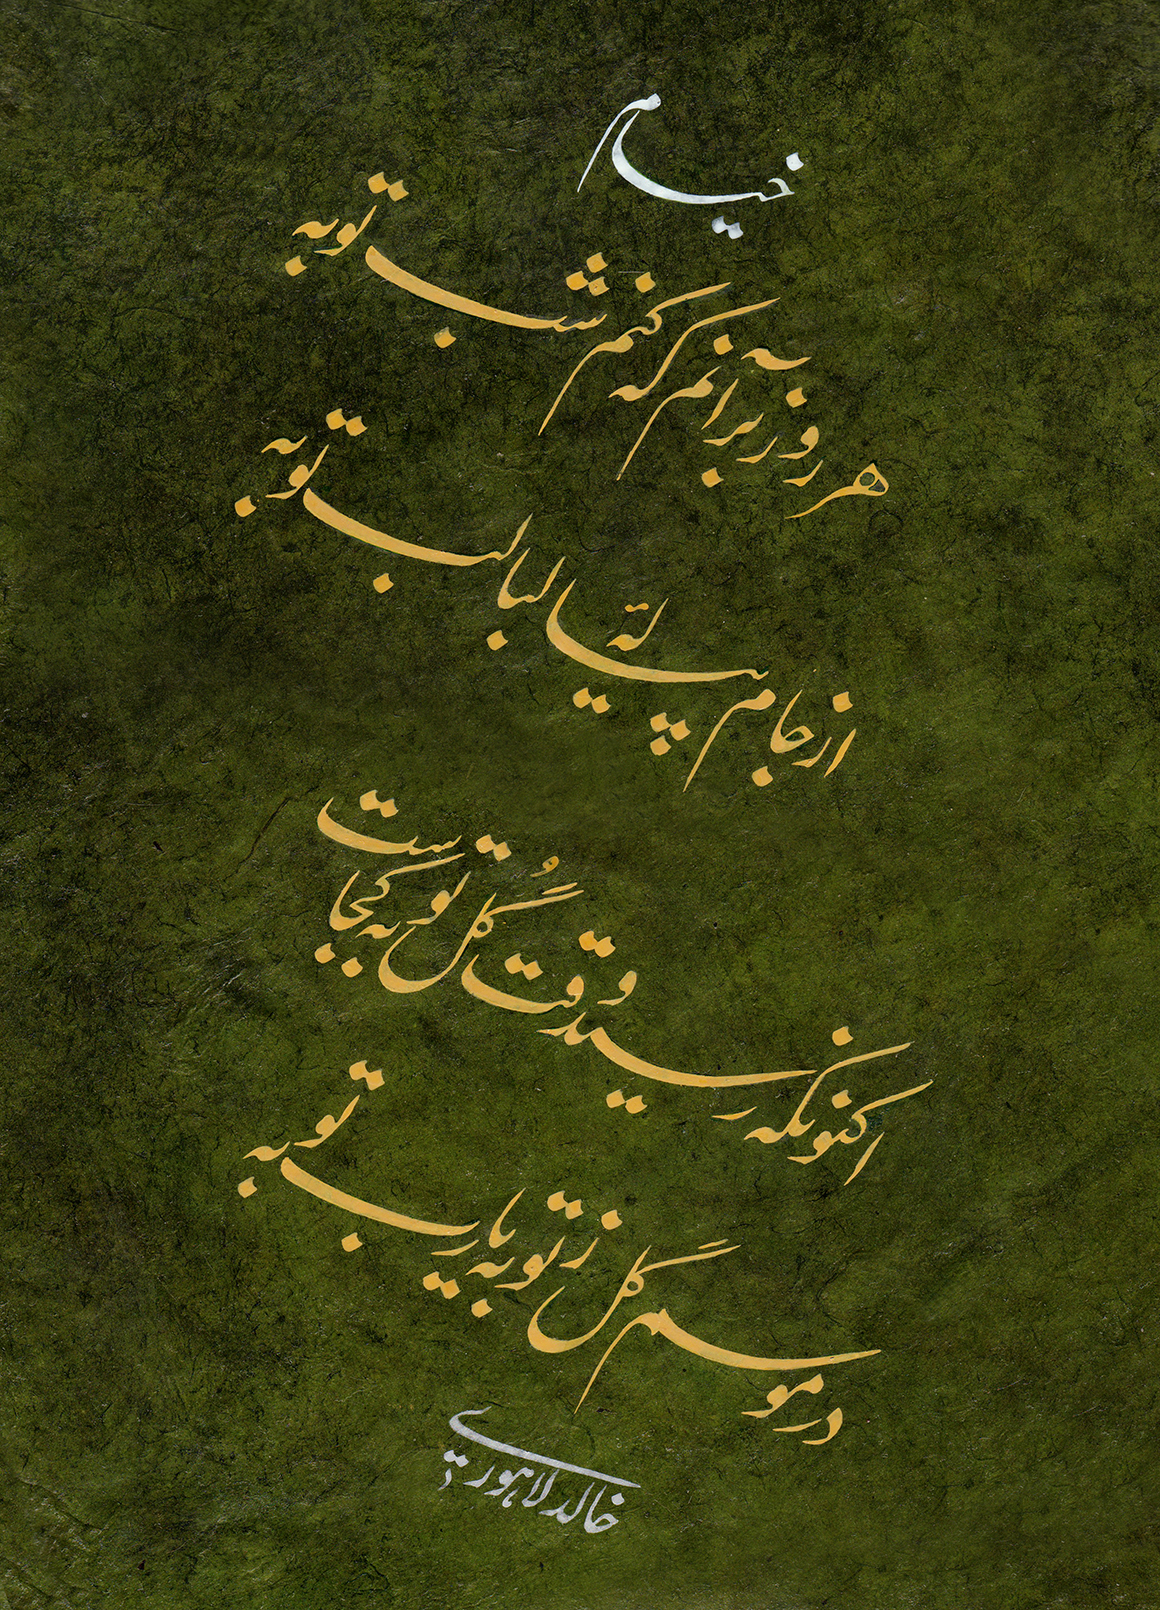 خیام
هر روز بر آنم که کنم شب توبه
از جام پیالهٔ لبالب توبه
اکنونکه رسید وقت گُل توبه کجاست
در موسم گل ز توبه یارب توبه
خالد لاہوری